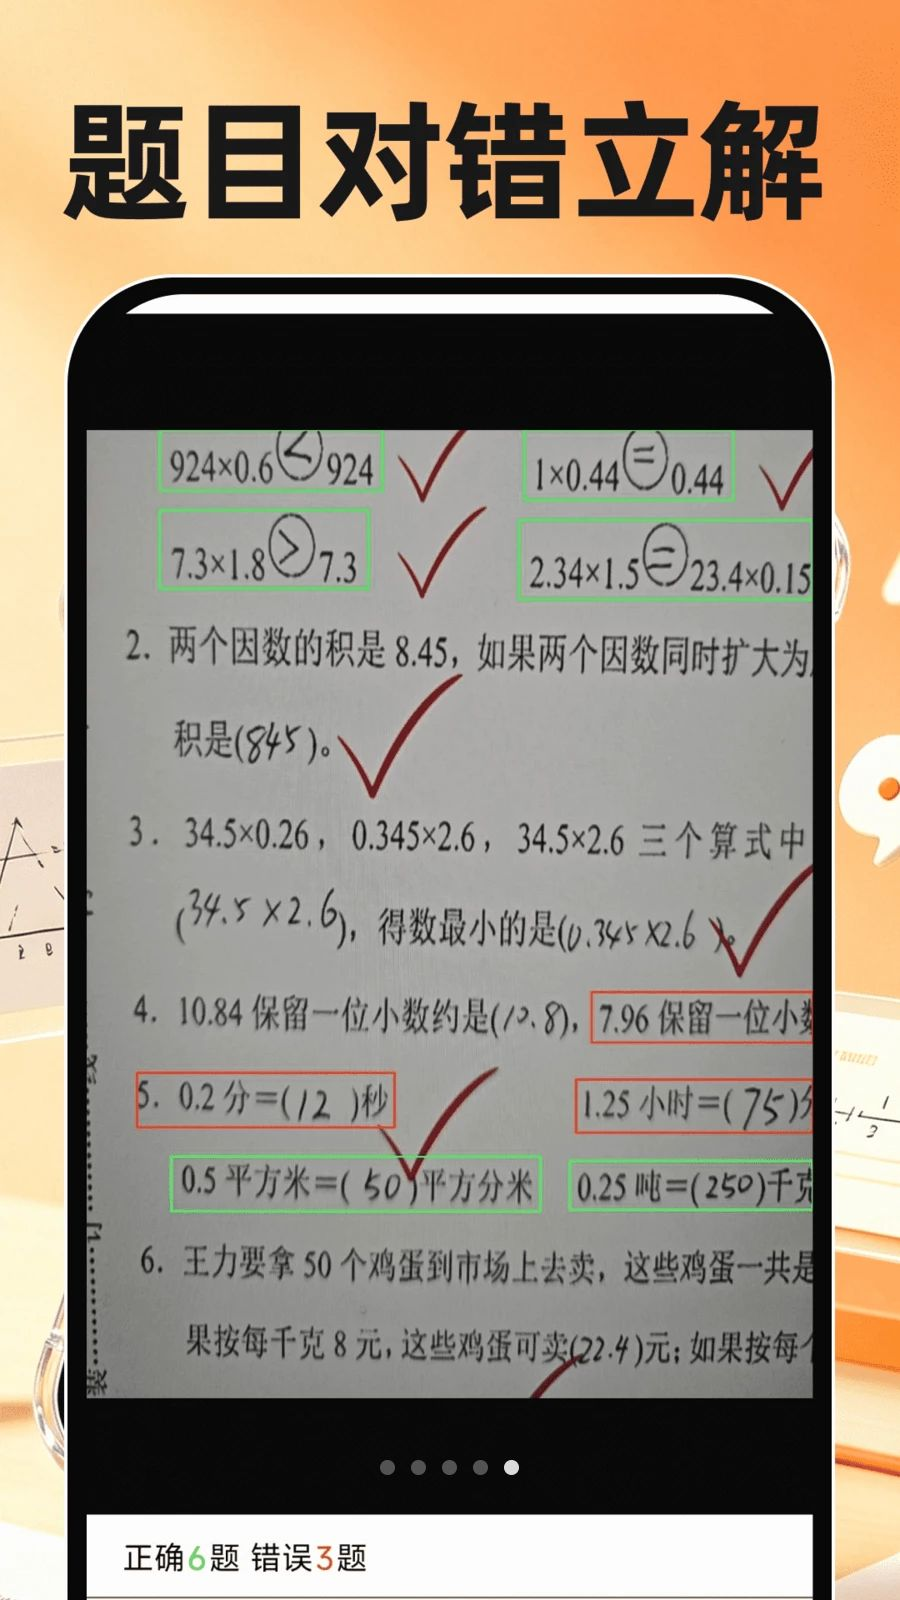 题目对错立解
924×0.6<924
1×0.44=0.44
7.3×1.8>7.3
2.34×1.5=23.4×0.15
2. 两个因数的积是 8.45，如果两个因数同时扩大为
积是(845)。
3. 34.5×0.26，0.345×2.6，34.5×2.6 三个算式中
(34.5×2.6)，得数最小的是(0.345×2.6)。
4. 10.84 保留一位小数约是(10.8)，7.96 保留一位小数
5. 0.2 分=(12)秒
1.25 小时=(75)分
0.5 平方米=(50)平方分米
0.25 吨=(250)千克
6. 王力要拿 50 个鸡蛋到市场上去卖，这些鸡蛋一共是
果按每千克 8 元，这些鸡蛋可卖(22.4)元；如果按每个
正确6题 错误3题